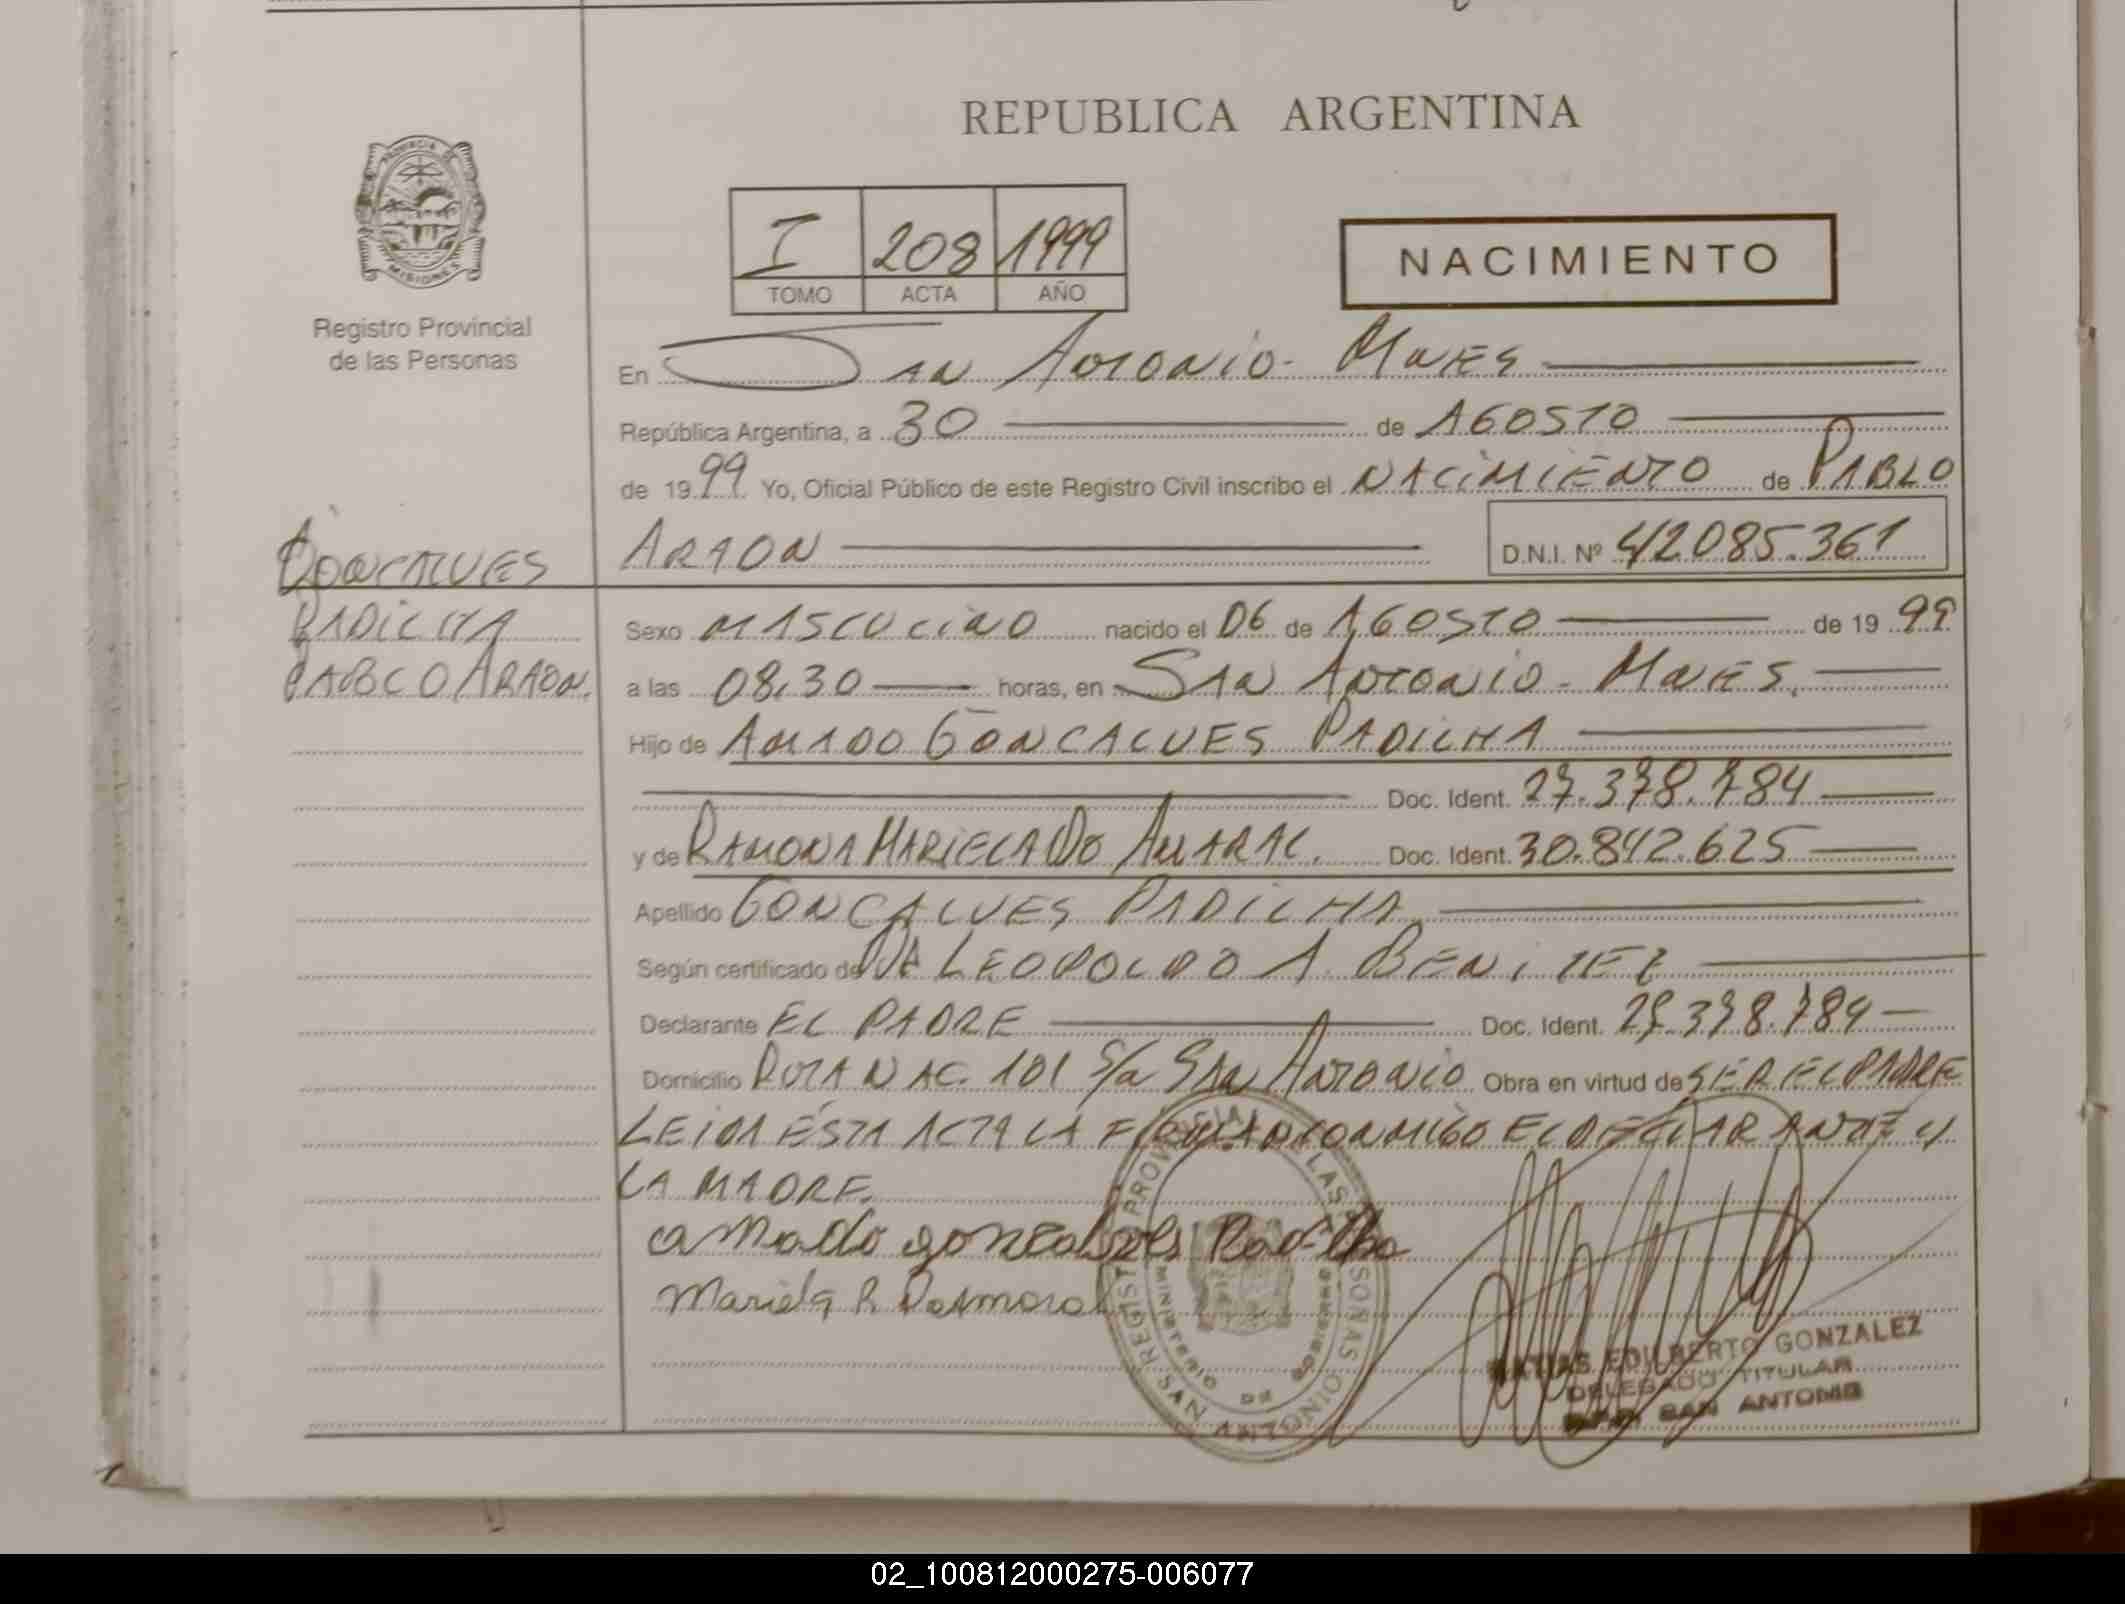 REPUBLICA ARGENTINA
PROVINCIA DE
MISIONES
Registro Provincial
de las Personas
I 208 1999
TOMO ACTA AÑO
NACIMIENTO
En SAN ANTONIO - MNES
República Argentina, a 30 de AGOSTO
de 1999 Yo, Oficial Público de este Registro Civil inscribo el NACIMIENTO de PABLO
ARAON D.N.I. Nº 42085.361
GONCALVES
PADILHA
PABLO ARAON.
Sexo MASCULINO nacido el 06 de AGOSTO de 1999
a las 08,30 horas, en SAN ANTONIO - MNES.
Hijo de AMADO GONCALVES PADILHA
Doc. Ident. 27.378.784
y de RAMONA MARIELA DO AMARAL. Doc. Ident. 30.842.625
Apellido GONCALVES PADILHA
Según certificado de DR LEOPOLDO A. BENITEZ
Declarante EL PADRE Doc. Ident. 27.378.784
Domicilio RUTA NAC. 101 S/n SAN ANTONIO Obra en virtud de SER EL PADRE
LEIDA ÉSTA ACTA LA FIRMAN CONMIGO EL DECLARANTE Y
LA MADRE.
amado gonzalves Padilha
Mariela R Doamaral
REGISTRO PROVINCIAL DE LAS PERSONAS
MINISTERIO DE GOBIERNO
SAN ANTONIO
MATIAS EDILBERTO GONZALEZ
DELEGADO TITULAR
SAN ANTONIO
02_100812000275-006077